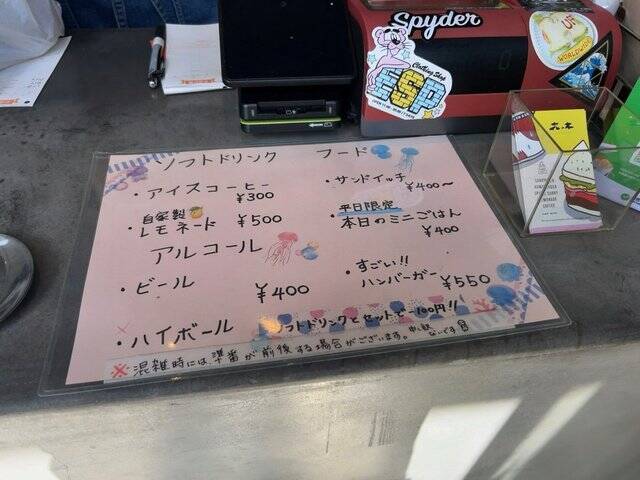 Spyder
Clothing Shop
ESP
UF
WORLDWIDE
ソフトドリンク
・アイスコーヒー
¥300
・自家製
レモネード ¥500
アルコール
・ビール ¥400
・ハイボール
フード
・サンドイッチ
¥400〜
平日限定
・本日のミニごはん
¥400
・すごい!!
ハンバーガー ¥550
ソフトドリンクとセットで-100円!!
※混雑時には、準番が前後する場合がございます。申し訳
ないです